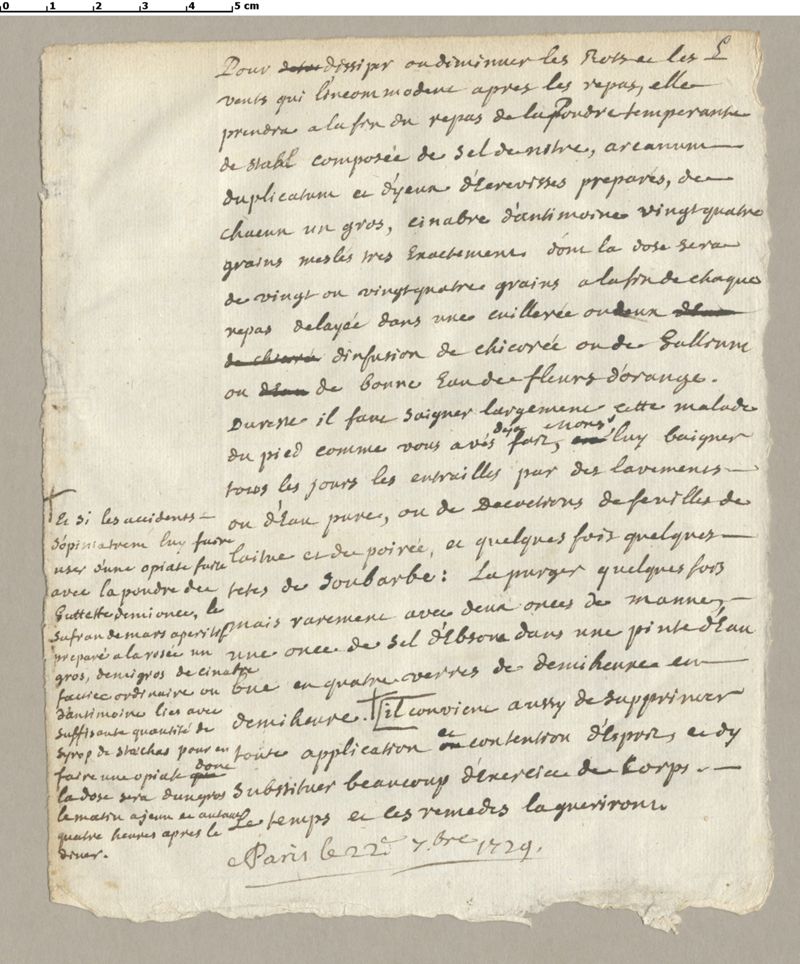 0 1 2 3 4 5 cm
Pour dissiper ou diminuer les Rots et les
vents qui l'incommodent apres les repas, elle
prendra a la fin du repas de la Poudre temperante
de stahl composée de Sel de nitre, arcanum
duplicatum et d'yeux d'Ecrevisses preparés, de
chacun un gros, cinabre d'antimoine vingt quatre
grains meslés tres Exactement dont la dose sera
de vingt ou vingtquatre grains a la fin de chaque
repas delayée dans une cuillerée ou deux d'Eau
de chicorée d'infusion de chicorée ou de Gallium
ou d'Eau de bonne Eau de fleurs d'orange.
Dureste il faut Saigner largement cette malade
du pied comme vous avés deja fait, luy baigner
tous les jours les entrailles par des lavements
ou d'Eau pure, ou de Decoctions de feuilles de
laitue et de poirée, et quelques fois quelques
tetes de Joubarbe: La purger quelques fois
mais rarement avec deux onces de manne,
une once de Sel d'Ebsom dans une pinte d'Eau
bue en quatre verres de demiheure en
demiheure. il convient aussy de Supprimer
toute application et contention d'Esprit, et dy
Substituer beaucoup d'Exercice de Corps.
Le temps et les remedes la gueriront.
a Paris le 22e 7.bre 1729.
Et Si les accidents
S'opiniatrent luy faire
user d'une opiate faite
avec la poudre de
Guttette demi once, le
Safran de mars aperitif
preparé a la rosée un
gros, demi gros de cinabre
factice ordinaire ou
d'antimoine liés avec
Suffisante quantité de
Syrop de Stoechas pour en
faire une opiate dont
la dose sera dun gros
le matin a jeun et autant
quatre heures apres le
diner.